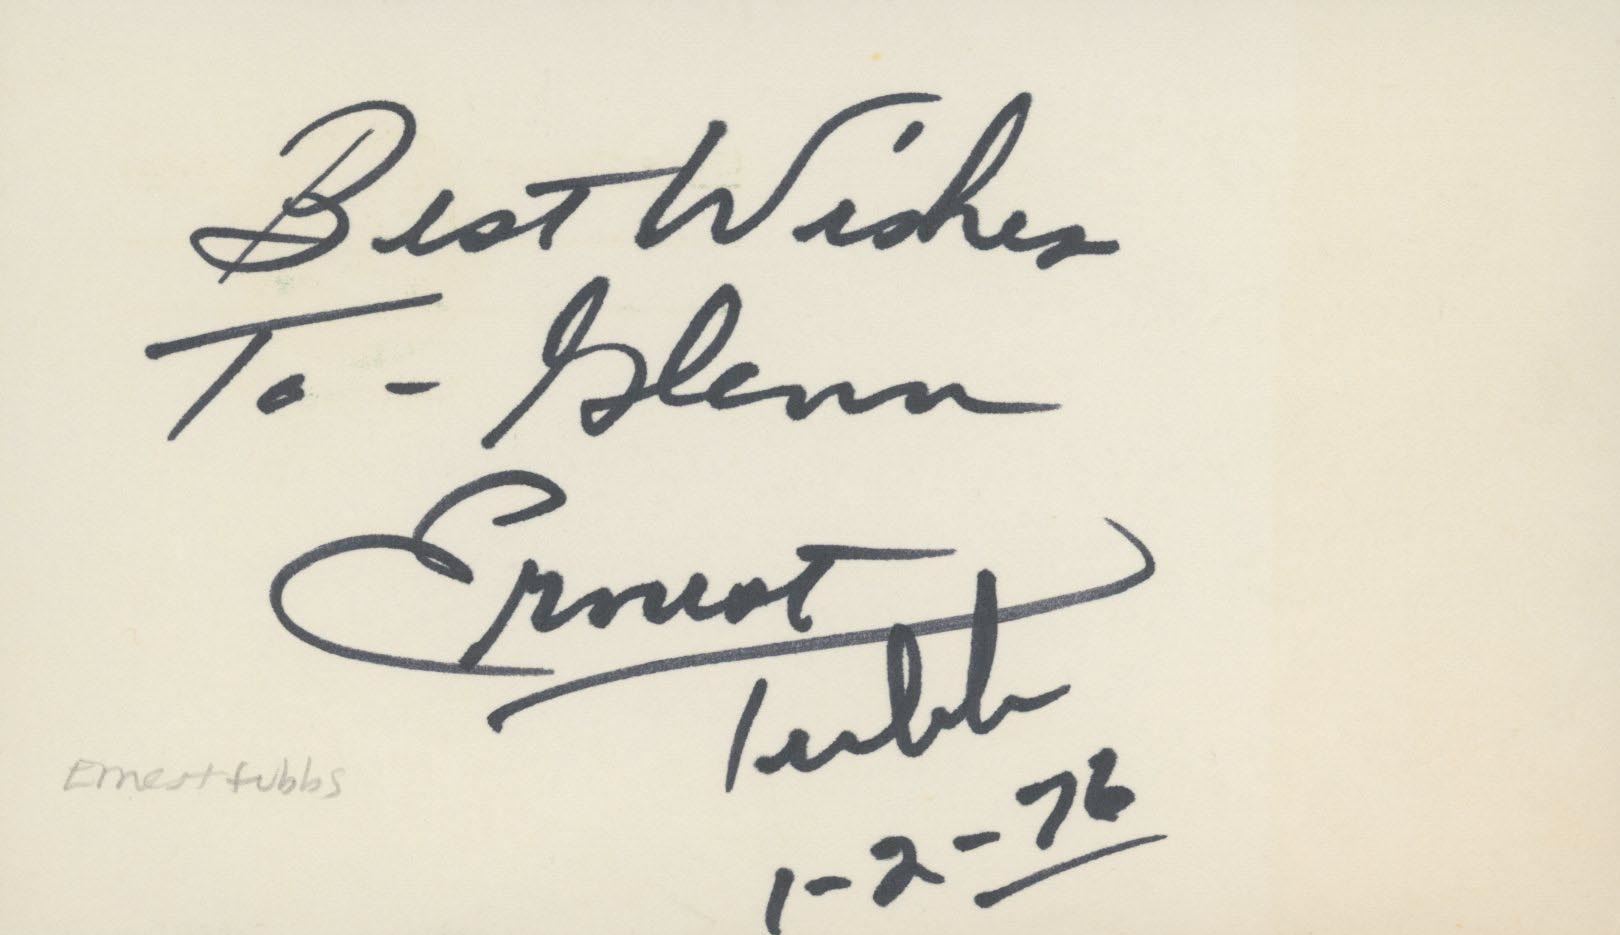 Best Wishes
To - Glenn
Ernest
Tubb
1-2-76
Ernest tubbs